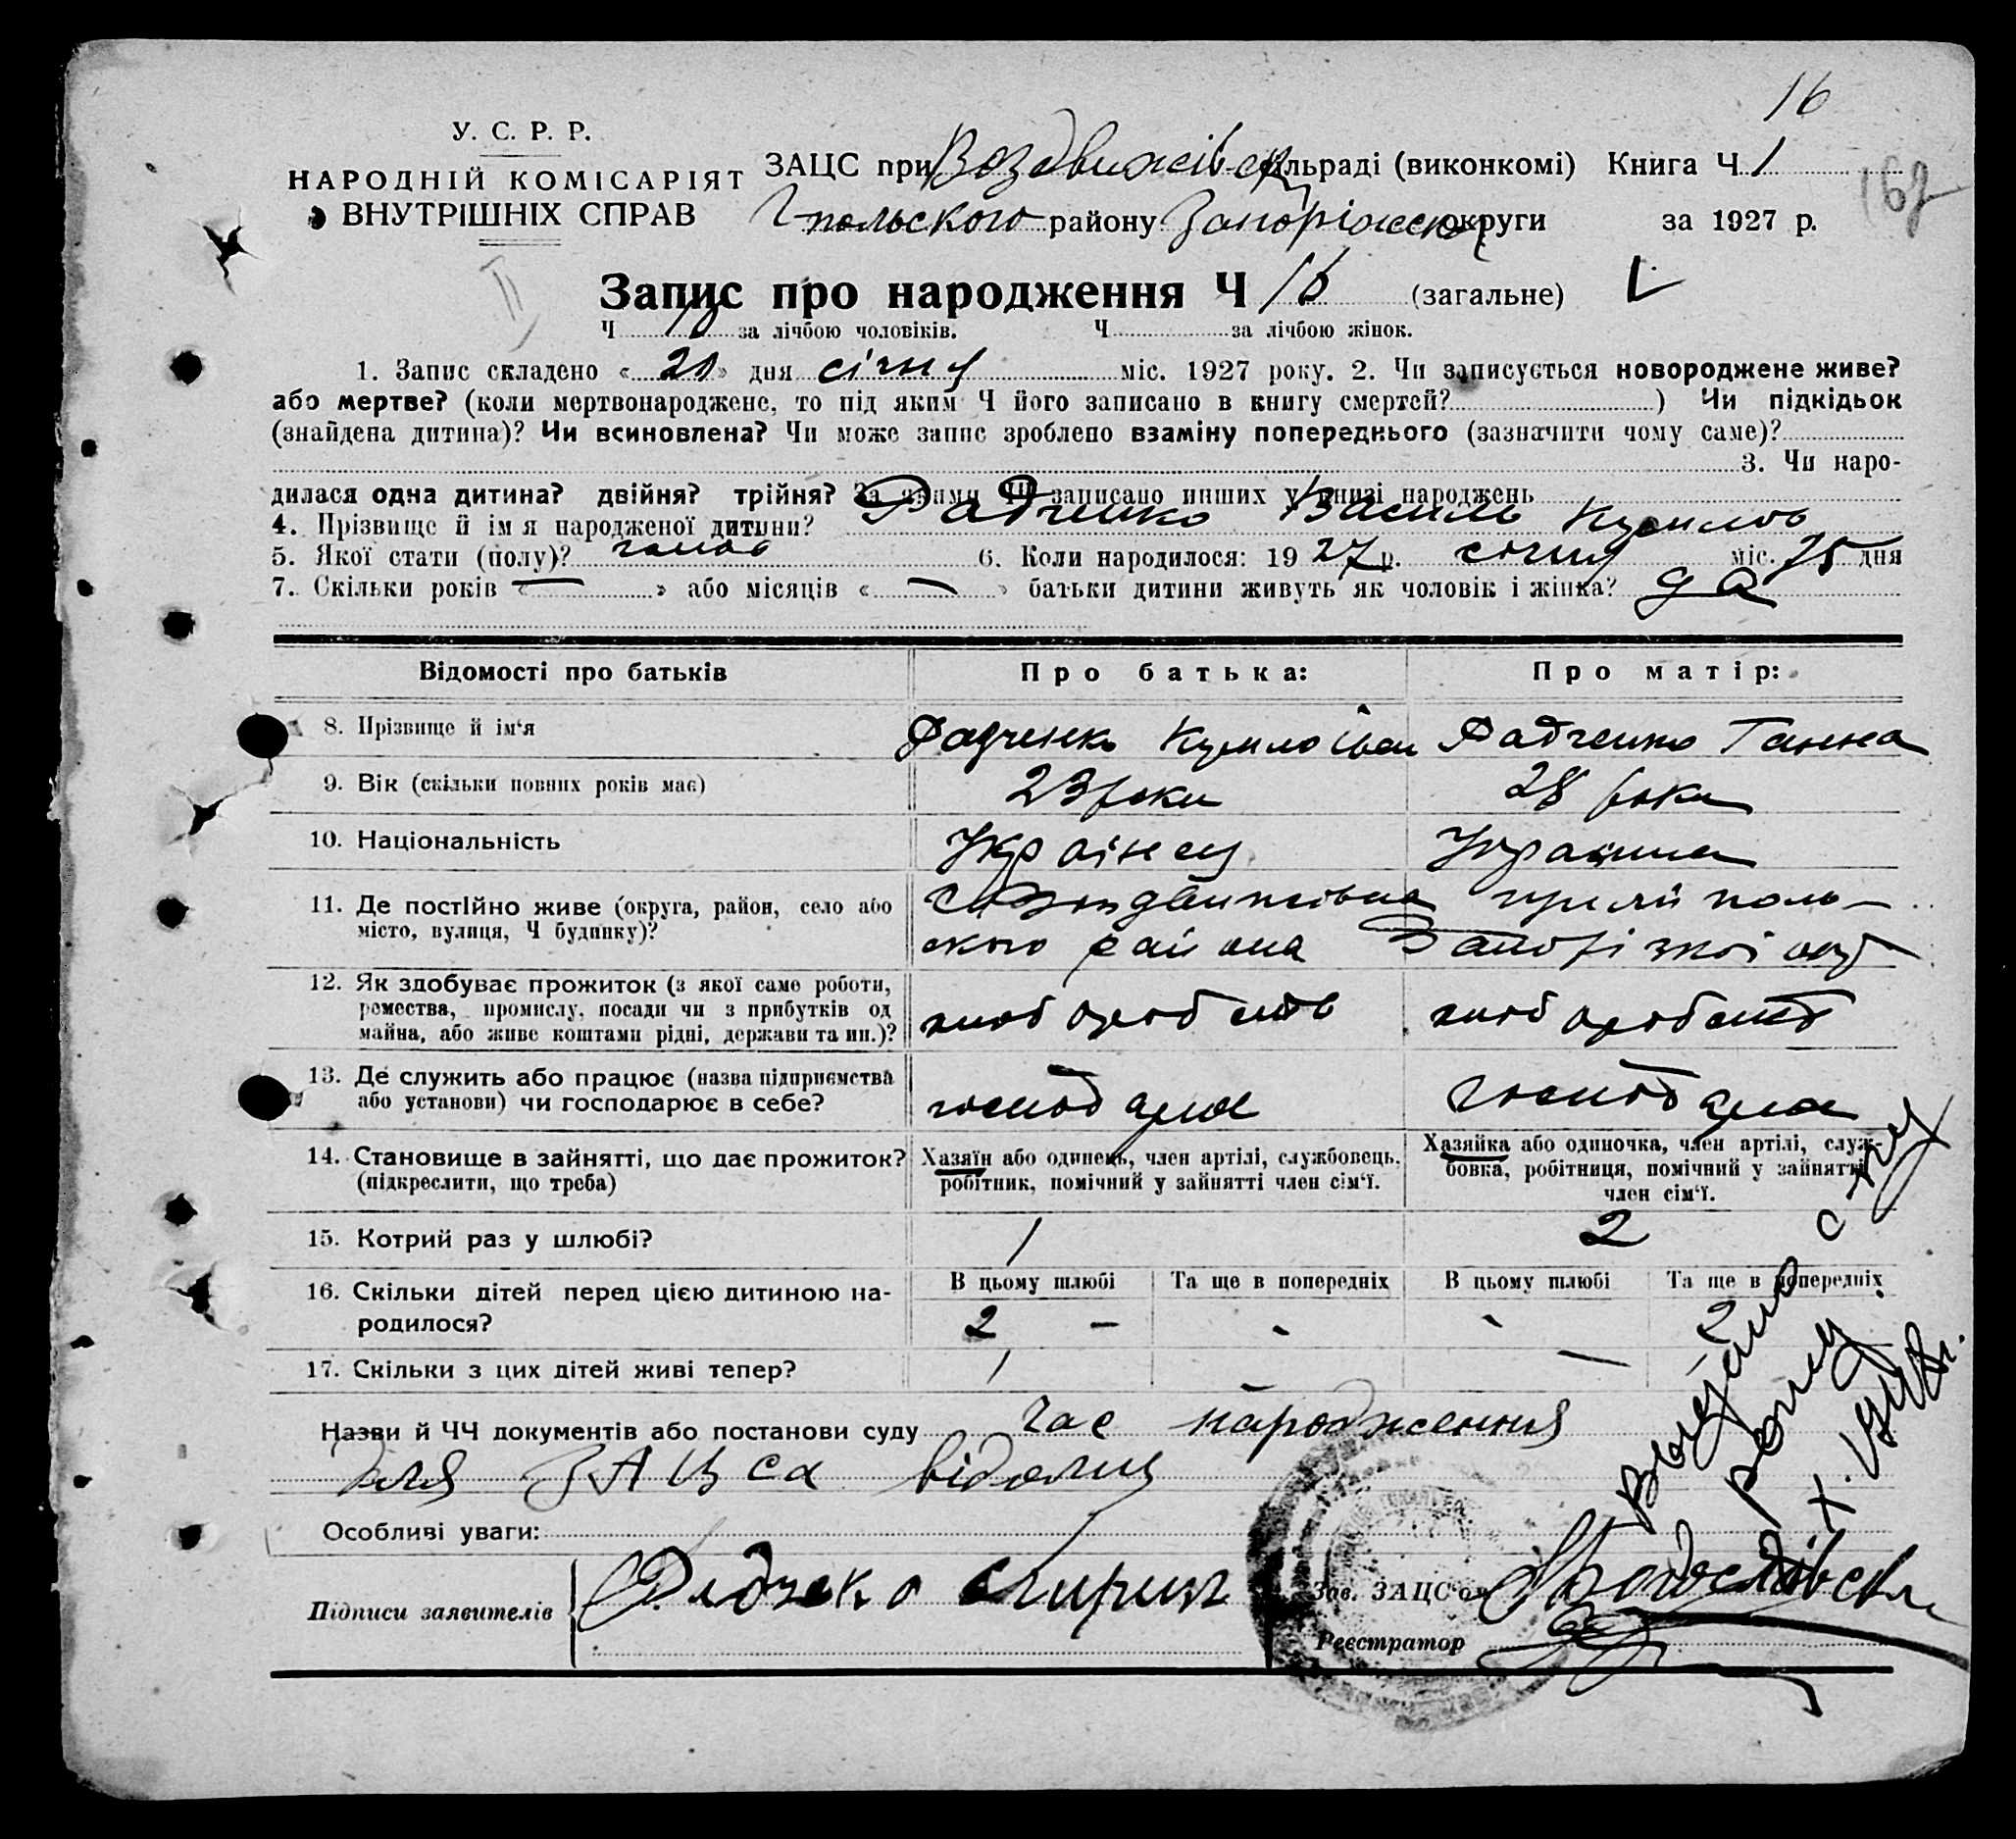 16
У. С. Р. Р.
НАРОДНІЙ КОМІСАРІЯТ
ВНУТРІШНІХ СПРАВ
ЗАЦС при Воздвижівск сільраді (виконкомі) Книга Ч 1
Г-польского району Запоріжскої округи за 1927 р.
Запис про народження Ч 16 (загальне)
Ч 10 за лічбою чоловіків. Ч за лічбою жінок.
1. Запис складено « 21 » дня січня міс. 1927 року. 2. Чи записується новороджене живе?
або мертве? (коли мертвонароджене, то під яким Ч його записано в книгу смертей? ) Чи підкідьок
(знайдена дитина)? Чи всиновлена? Чи може запис зроблено взаміну попереднього (зазначити чому саме)?
3. Чи наро-
дилася одна дитина? двійня? трійня? За якими ЧЧ записано инших у книзі народжень
4. Прізвище й імя народженої дитини? Радченко Василь
5. Якої стати (полу)? 6. Коли народилося: 1927 р. січня міс. 15 дня
7. Скільки років « — » або місяців « — » батьки дитини живуть як чоловік і жінка? да
Відомості про батьків Про батька: Про матір:
8. Прізвище й ім'я Радченко Іван Радченко Ганна
9. Вік (скільки повних років має) 23 роки 28 роки
10. Національність Українець Украинка
11. Де постІйно живе (округа, район, село або с Воздвижівка гуляй поль-
місто, вулиця, Ч будинку)? ского района Запорізкої окр
12. Як здобуває прожиток (з якої саме роботи,
ремества, промислу, посади чи з прибутків од
майна, або живе коштами рідні, держави та ин.)? хлоборобств хлоборобств
13. Де служить або працює (назва підприємства
або установи) чи господарює в себе? господарює господарює
14. Становище в зайнятті, що дає прожиток? Хазяїн або одинець, член артілі, службовець, Хазяйка або одиночка, член артілі, служ-
(підкреслити, що треба) робітник, помічний у зайнятті член сім'ї. бовка, робітниця, помічний у зайнятті
член сім'ї.
15. Котрий раз у шлюбі? 1 2
16. Скільки дітей перед цією дитиною на- В цьому шлюбі Та ще в попередніх В цьому шлюбі Та ще в попередніх
родилося? 2 — - - 2
17. Скільки з цих дітей живі тепер? 1 —
Назви й ЧЧ документів або постанови суду час народження
для ЗАЦСа відомий
Особливі уваги:
Підписи заявителів Радчеко
Зав. ЗАЦС'ом
Реєстратор